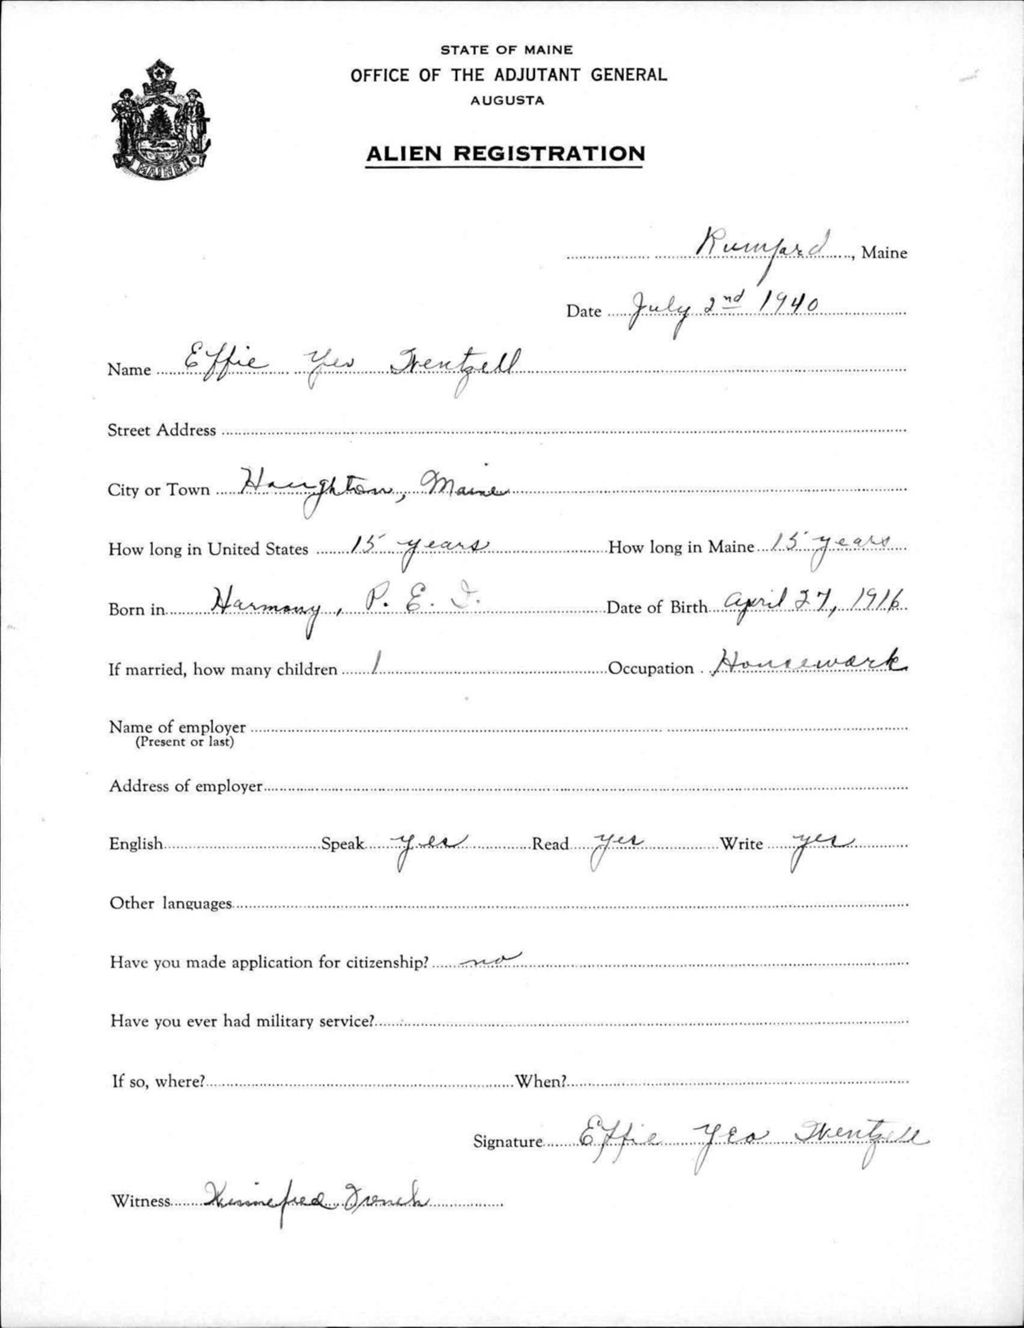 STATE OF MAINE
OFFICE OF THE ADJUTANT GENERAL
AUGUSTA
ALIEN REGISTRATION
MAINE
Rumford, Maine
Date July 2nd 1940
Name Effie Yeo Wentzell
Street Address
City or Town Houghton, Maine
How long in United States 15 years How long in Maine 15 years
Born in Harmony, P. E. I. Date of Birth April 27, 1916
If married, how many children 1 Occupation Housework
Name of employer
(Present or last)
Address of employer
English Speak yes Read yes Write yes
Other languages
Have you made application for citizenship? no
Have you ever had military service?
If so, where? When?
Signature Effie Yeo Wentzell
Witness Winnefred French